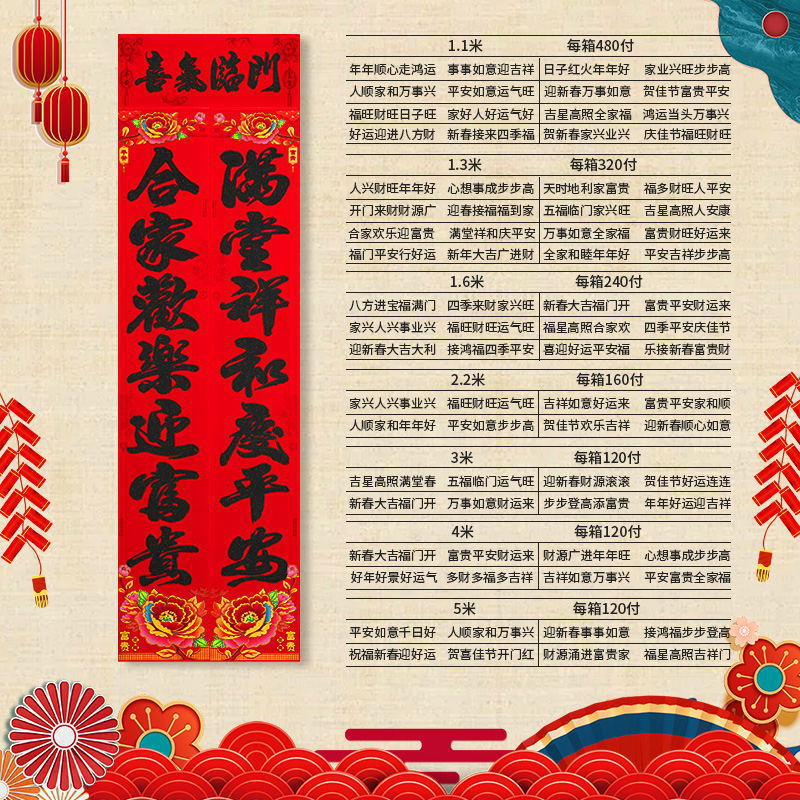 喜氣臨門
合家歡樂迎富貴
滿堂祥和慶平安
富贵
富贵
1.1米 每箱480付
年年顺心走鸿运 事事如意迎吉祥 日子红火年年好 家业兴旺步步高
人顺家和万事兴 平安如意运气旺 迎新春万事如意 贺佳节富贵平安
福旺财旺日子旺 家好人好运气好 吉星高照全家福 鸿运当头万事兴
好运迎进八方财 新春接来四季福 贺新春家兴业兴 庆佳节福旺财旺
1.3米 每箱320付
人兴财旺年年好 心想事成步步高 天时地利家富贵 福多财旺人平安
开门来财财源广 迎春接福福到家 五福临门家兴旺 吉星高照人安康
合家欢乐迎富贵 满堂祥和庆平安 万事如意全家福 富贵财旺好运来
福门平安行好运 新年大吉广进财 全家和睦年年好 平安吉祥步步高
1.6米 每箱240付
八方进宝福满门 四季来财家兴旺 新春大吉福门开 富贵平安财运来
家兴人兴事业兴 福旺财旺运气旺 福星高照合家欢 四季平安庆佳节
迎新春大吉大利 接鸿福四季平安 喜迎好运平安福 乐接新春富贵财
2.2米 每箱160付
家兴人兴事业兴 福旺财旺运气旺 吉祥如意好运来 富贵平安家和顺
人顺家和年年好 平安如意步步高 贺佳节欢乐吉祥 迎新春顺心如意
3米 每箱120付
吉星高照满堂春 五福临门运气旺 迎新春财源滚滚 贺佳节好运连连
新春大吉福门开 万事如意财运来 步步登高添富贵 年年好运迎吉祥
4米 每箱120付
新春大吉福门开 富贵平安财运来 财源广进年年旺 心想事成步步高
好年好景好运气 多财多福多吉祥 吉祥如意万事兴 平安富贵全家福
5米 每箱120付
平安如意千日好 人顺家和万事兴 迎新春事事如意 接鸿福步步登高
祝福新春迎好运 贺喜佳节开门红 财源涌进富贵家 福星高照吉祥门